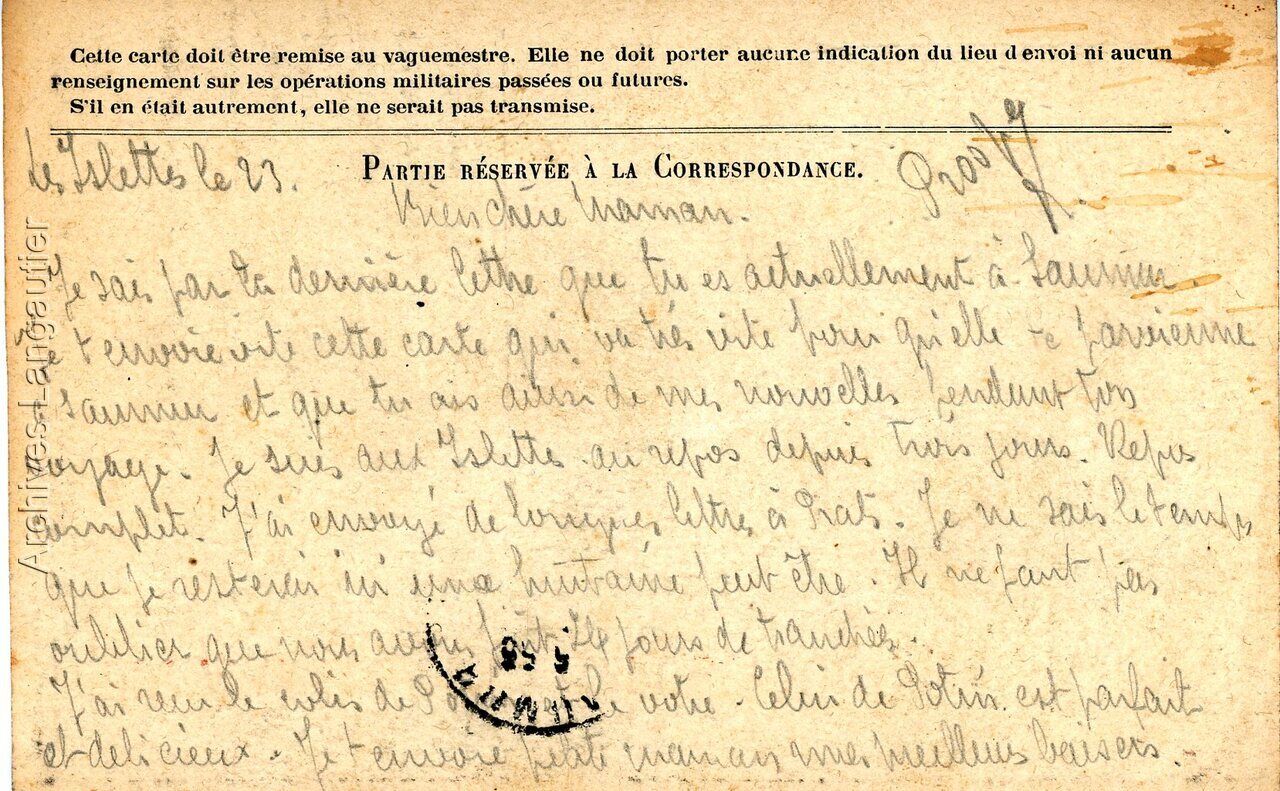 Cette carte doit être remise au vaguemestre. Elle ne doit porter aucune indication du lieu d'envoi ni aucun
renseignement sur les opérations militaires passées ou futures.
S'il en était autrement, elle ne serait pas transmise.
PARTIE RÉSERVÉE À LA CORRESPONDANCE.
Les Islettes le 23.
Bien chère Maman.
Je sais par ta dernière lettre que tu es actuellement à Saumur.
Je t'envoie vite cette carte qui va très vite pour qu'elle te parvienne
Saumur et que tu ais ainsi de mes nouvelles pendant ton
voyage. Je suis aux Islettes au repos depuis trois jours. Repos
complet. J'ai envoyé de longues lettres à Prats. Je ne sais le temps
que je resterai ici une huitaine peut être. Il ne faut pas
oublier que nous avons fait 24 jours de tranchées.
J'ai reçu le colis de et le votre. Celui de Potin est parfait
et delicieux. Je t'envoie petite maman mes meilleurs baisers.
Archives-Langautier